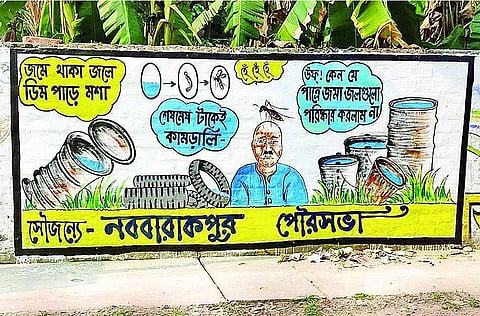 জমে থাকা জলে
ডিম পাড়ে মশা
হিঃ হিঃ হিঃ
শেষমেষ টাকেই
কামড়ালি
উফ্! কেন যে
পাত্রে জমা জলগুলো
পরিষ্কার করলাম না
সৌজন্যে- নববারাকপুর পৌরসভা